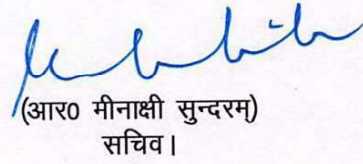 (आर0 मीनाक्षी सुन्दरम्)
सचिव।